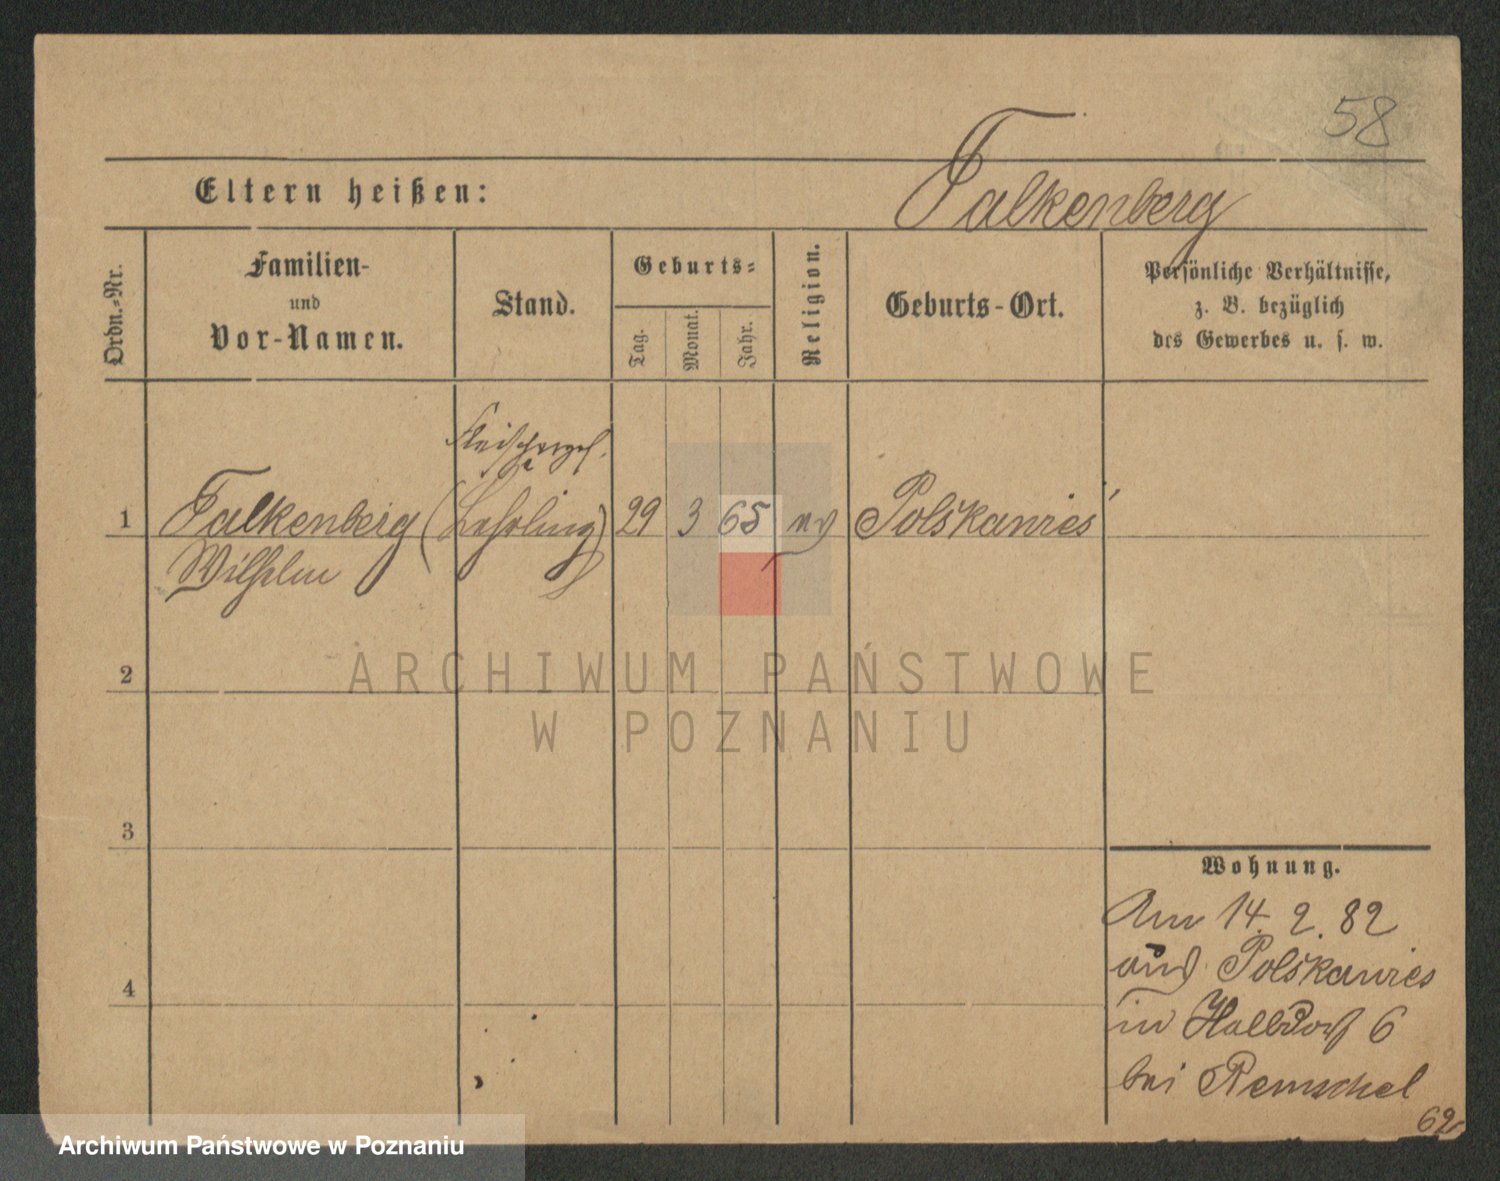 58
Eltern heißen: Falkenberg
Ordn.-Nr.
Familien-
und
Vor-Namen.
Stand.
Geburts-
Tag.
Monat.
Jahr.
Religion.
Geburts-Ort.
Persönliche Verhältnisse,
z. B. bezüglich
des Gewerbes u. s. w.
Fleischergs.
1 Falkenberg (Lehrling) 29 3 65 ev Polskawies
Wilhelm
2
3
4
Wohnung.
Am 14. 2. 82
aus Polskawies
in Halbdorf 6
bei Remschel
62
ARCHIWUM PAŃSTWOWE
W POZNANIU
Archiwum Państwowe w Poznaniu